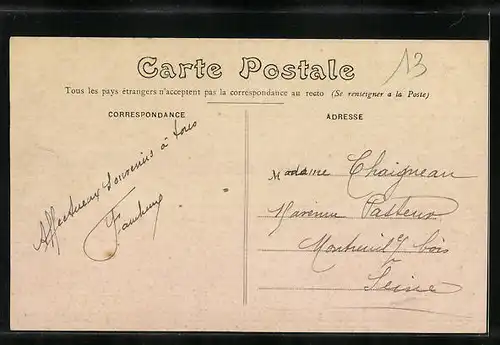 13
Carte Postale
Tous les pays étrangers n'acceptent pas la correspondance au recto (Se renseigner a la Poste)
CORRESPONDANCE
ADRESSE
Affectueux souvenirs à tous
Madame Chaigneau
Pasteur
Montreuil s/ bois
Seine